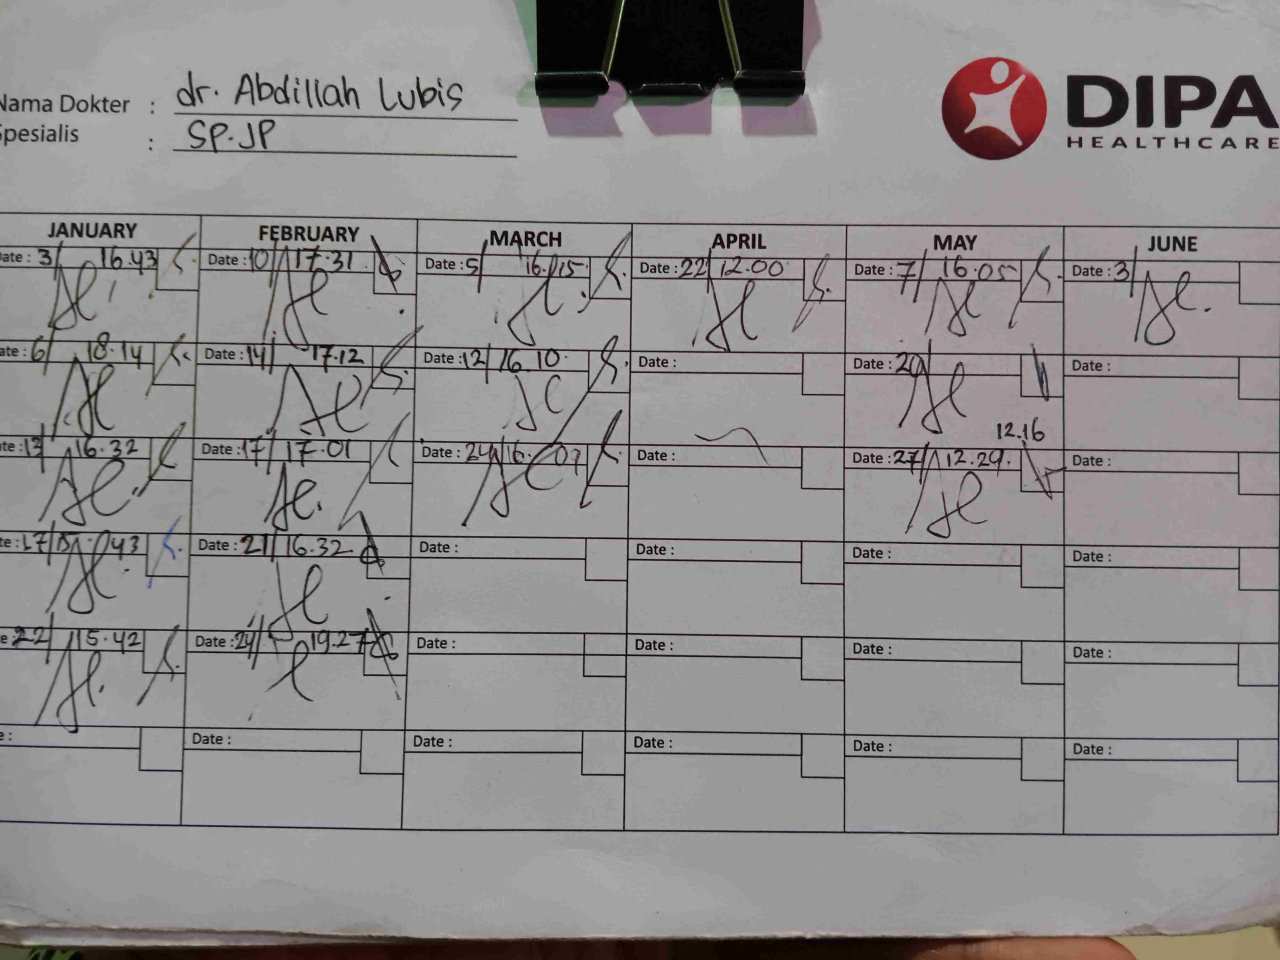 Nama Dokter : dr. Abdillah Lubis
Spesialis : SP.JP
DIPA
HEALTHCARE
JANUARY FEBRUARY MARCH APRIL MAY JUNE
Date: 3/ 16.43 Date: 10/ 17.31 Date: 5/ 16.15 Date: 22/ 12.00 Date: 7/ 16.05 Date: 3/
ate: 6/ 18.14 Date: 14/ 17.12 Date: 12/ 16.10 Date: Date: 20/ Date:
12.16
te: 13/ 16.32 Date: 17/ 17.01 Date: 24/ 16.07 Date: Date: 27/ 12.29. Date:
te: 17/ 15.43 Date: 21/ 16.32 Date: Date: Date: Date:
e: 22/ 15.42 Date: 24/ 19.27 Date: Date: Date: Date:
e: Date: Date: Date: Date: Date: